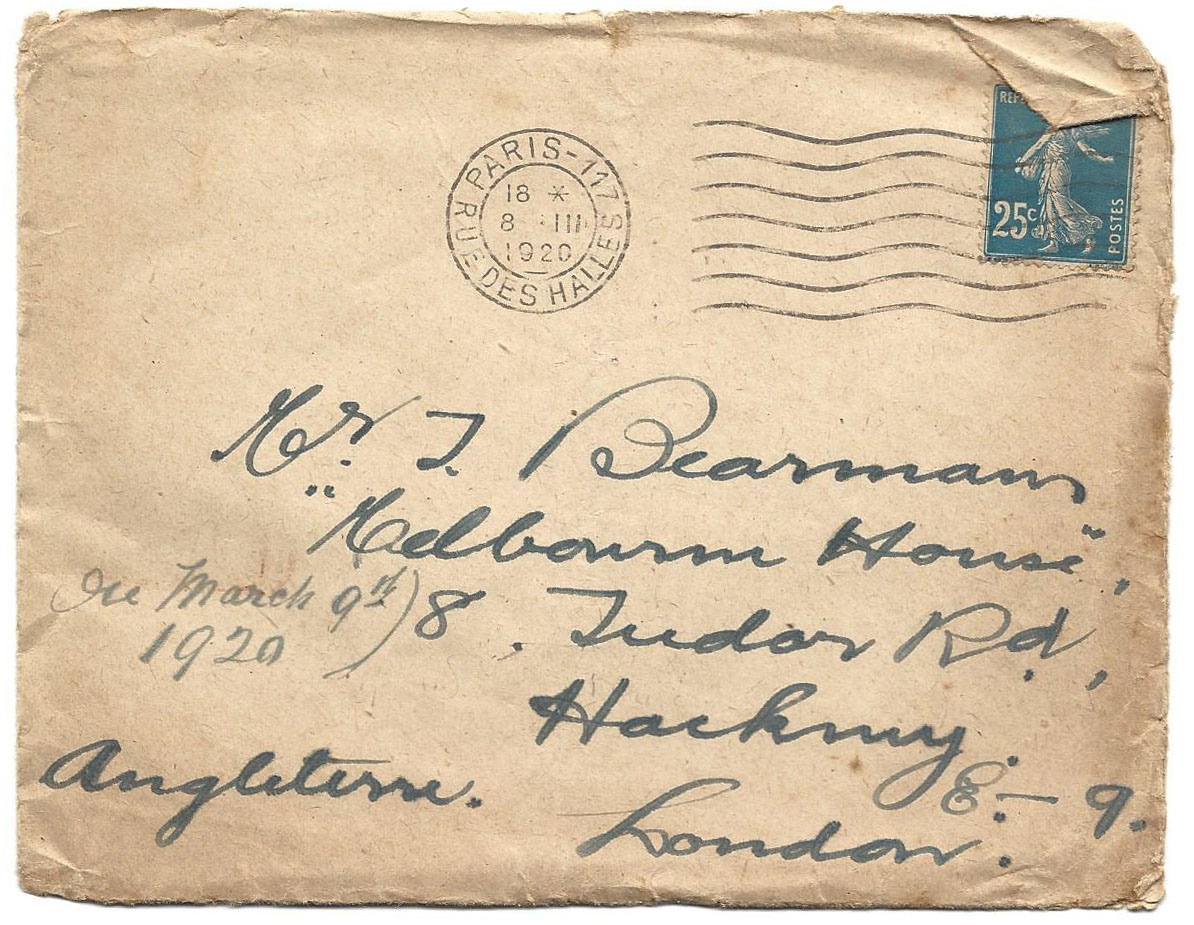 PARIS-117
18 *
8 III
1920
RUE DES HALLES
25c
POSTES
Mr. T. Bearman
"Melbourne House",
8, Tudor Rd,
Hackney.
E.-9.
London.
Angleterre.
March 9th)
1920